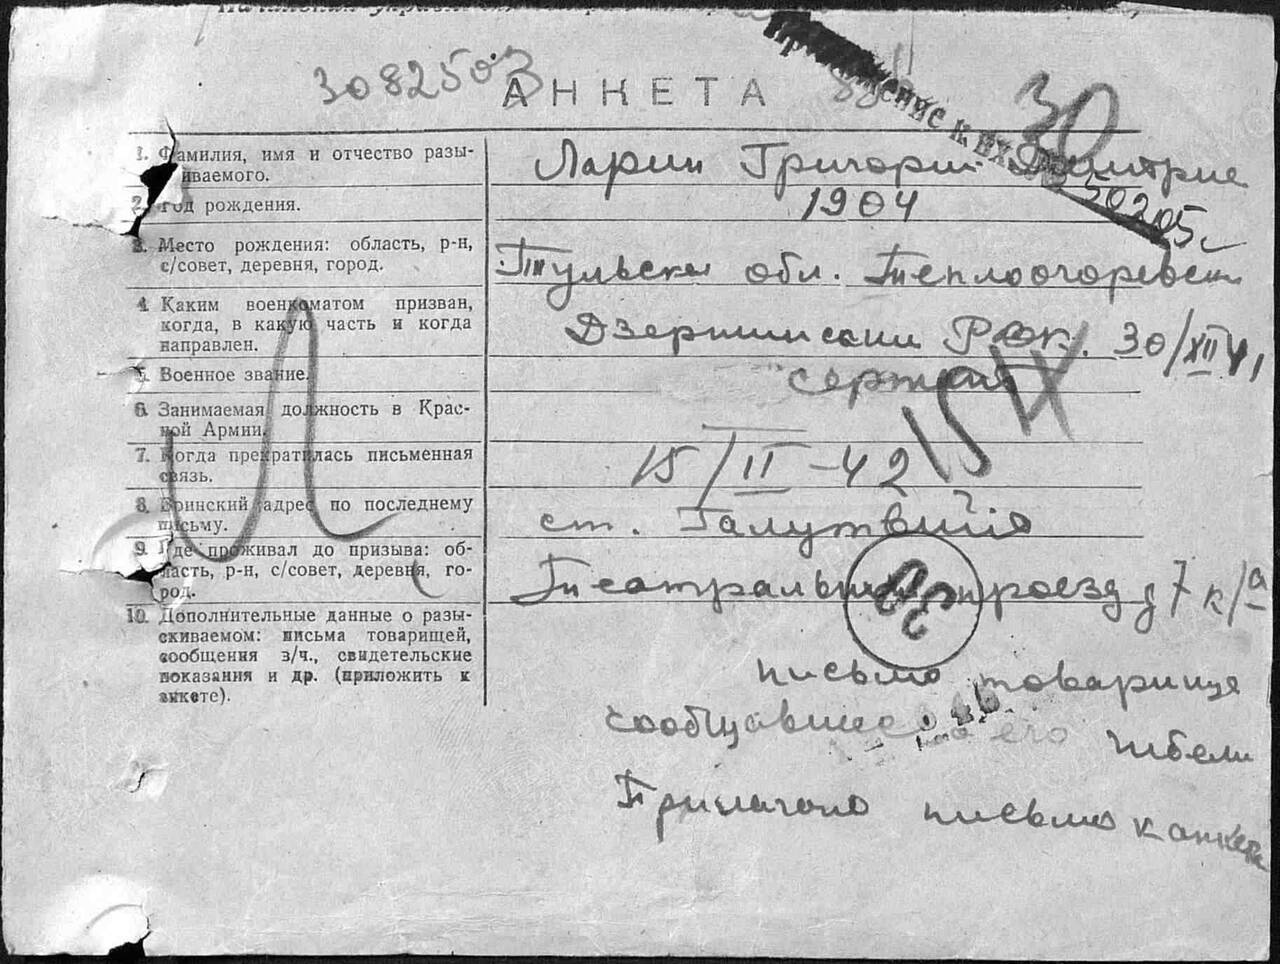 3082503
АНКЕТА
30
Приложение к вх. 50205с
1. Фамилия, имя и отчество разы-
иваемого.
Ларин Григорий Дмитрие
2. Год рождения.
1904
3. Место рождения: область, р-н,
с/совет, деревня, город.
Тульская обл. Теплоогоревск
4. Каким военкоматом призван,
когда, в какую часть и когда
направлен.
Дзержински РВК. 30/XII 41
5. Военное звание.
сержант
6. Занимаемая должность в Крас-
ной Армии.
15 IV
7. Когда прекратилась письменная
связь.
15/II-42
8. Воинский адрес по последнему
письму.
ст.
9. Где проживал до призыва: об-
ласть, р-н, с/совет, деревня, го-
род.
Театральный проезд д 7 к/а
30
10. Дополнительные данные о разы-
скиваемом: письма товарищей,
сообщения з/ч., свидетельские
показания и др. (приложить к
анкете).
письмо товарища
сообщавшее о его гибели
Прилагаю письмо к анкете